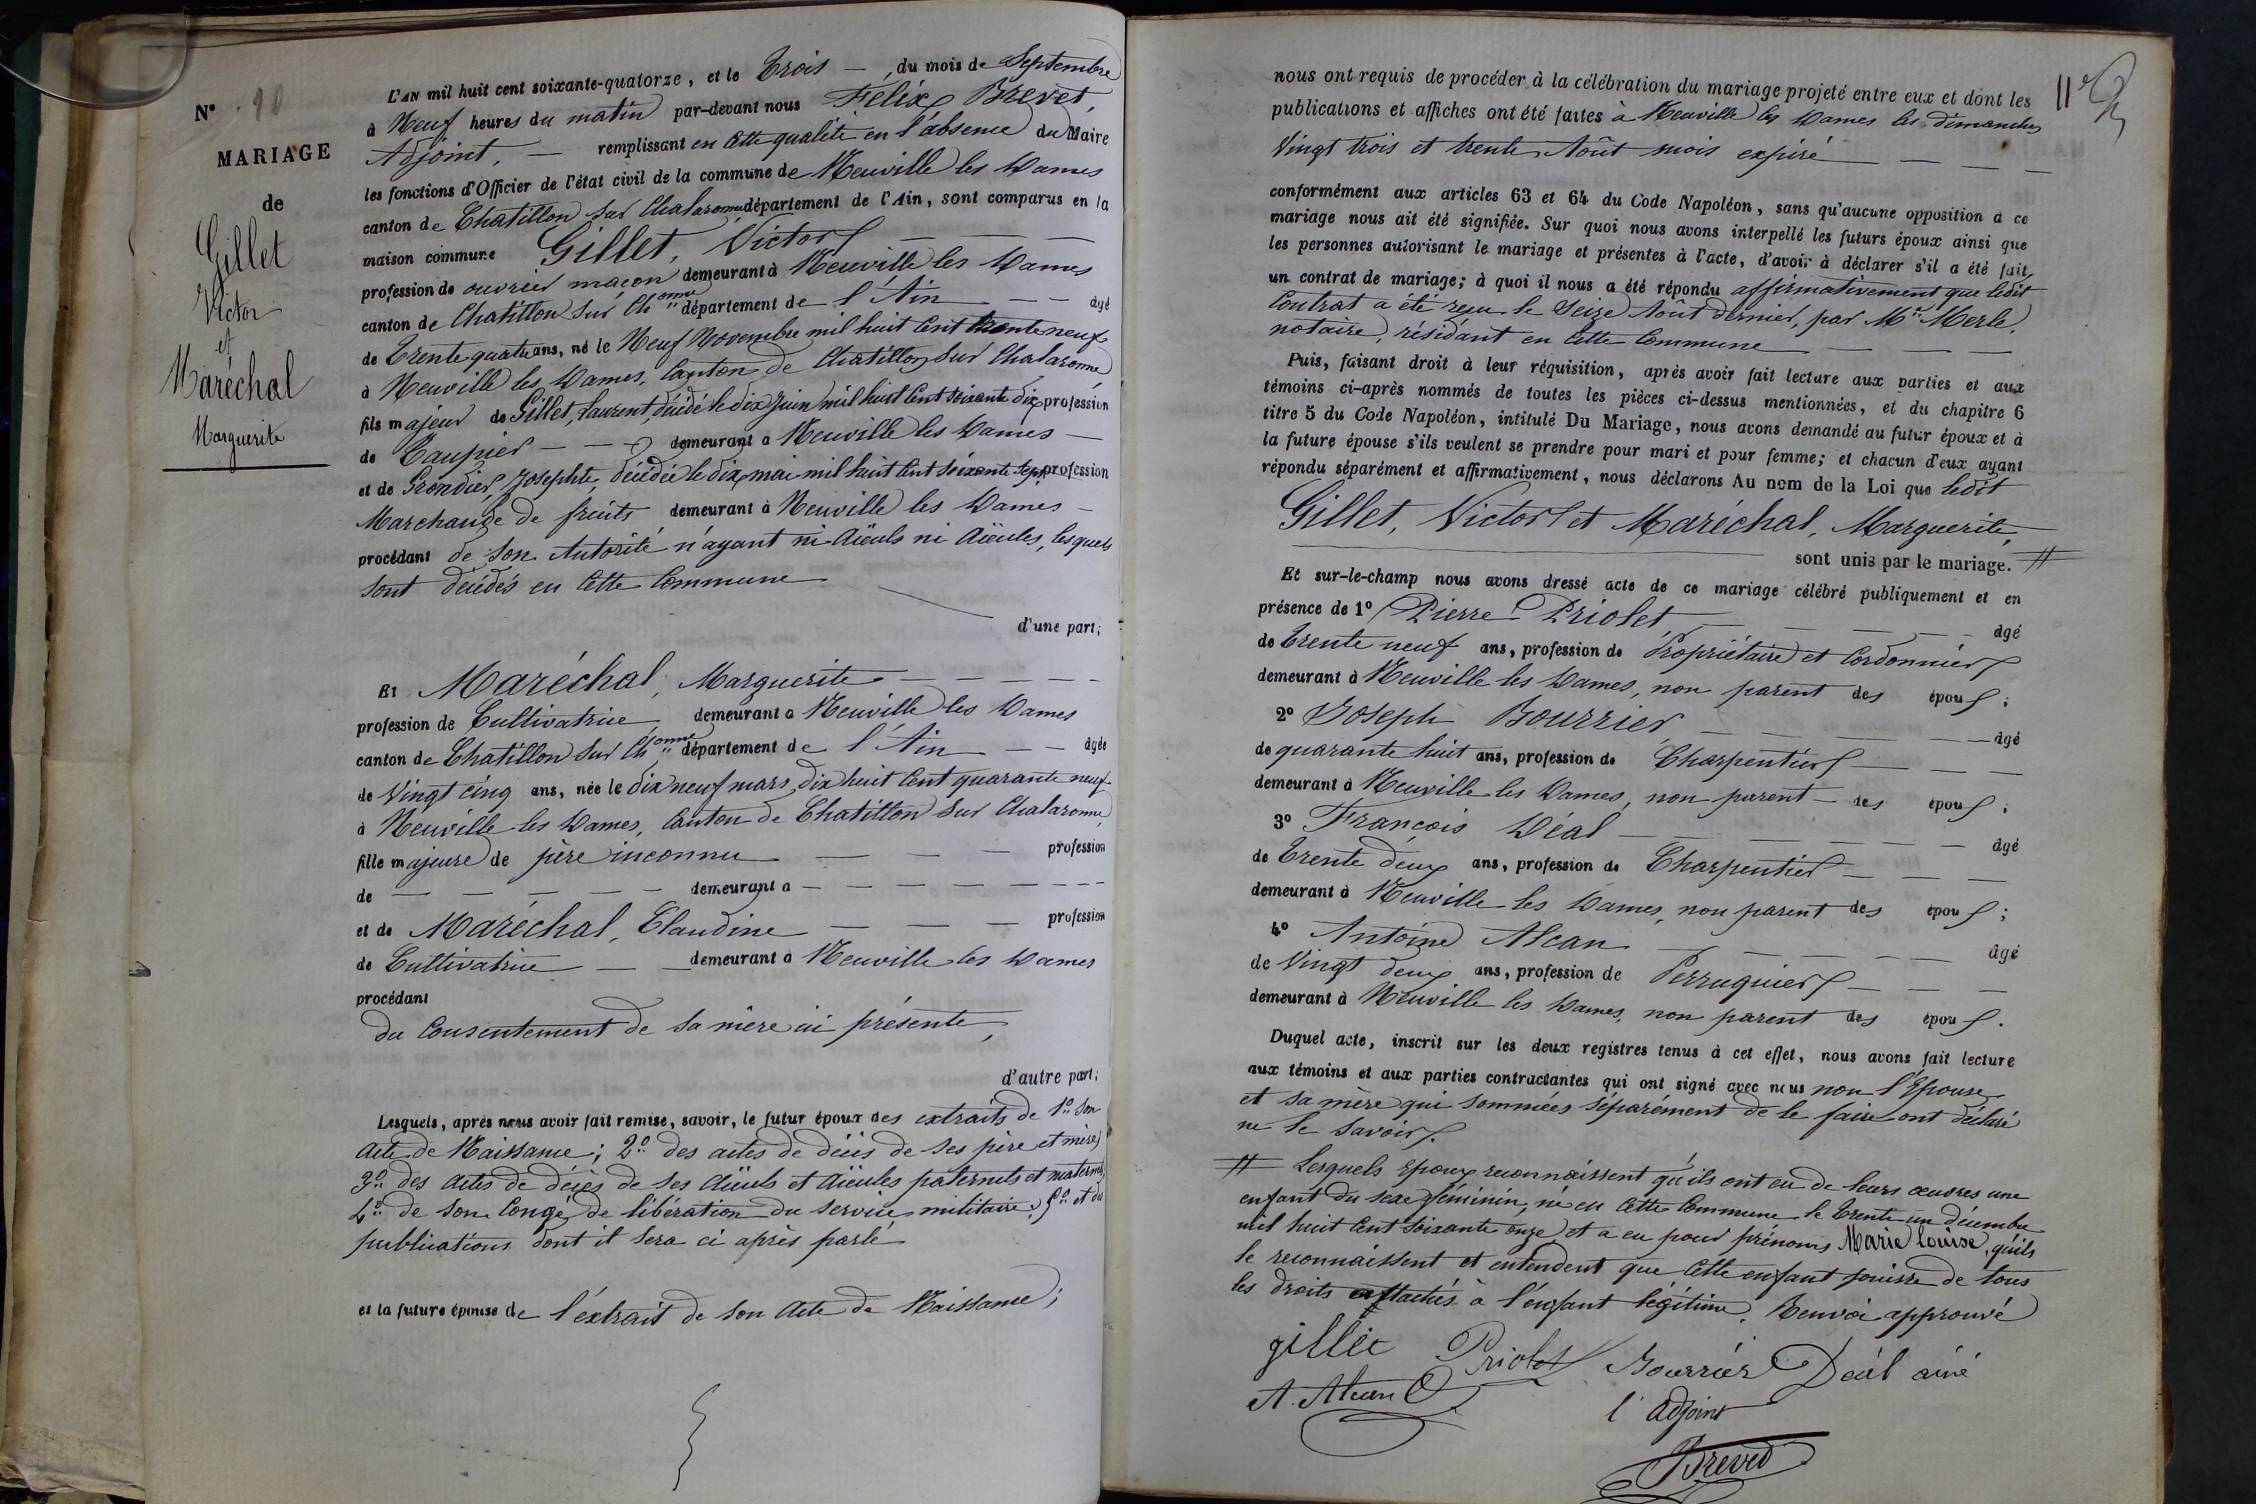 N° 20
MARIAGE
de
Gillet
Victor
et
Maréchal
Marguerite
L'AN mil huit cent soixante-quatorze, et le Trois — , du mois de Septembre
à Neuf heures du matin par-devant nous Félix Brevet,
Adjoint, — remplissant en cette qualité en l'absence du Maire
les fonctions d'Officier de l'état civil de la commune de Neuville les Dames
canton de Chatillon sur Chalaronne département de l'Ain, sont comparus en la
maison commune Gillet, Victor — — —
profession de ouvrier maçon demeurant à Neuville les Dames
canton de Chatillon sur Ch.onne département de l'Ain — — âgé
de Trente quatre ans, né le Neuf Novembre mil huit cent trente neuf
à Neuville les Dames, Canton de Chatillon sur Chalaronne,
fils majeur de Gillet, Laurent, décédé le dix Juin mil huit cent soixante dix profession
de Taupier — — demeurant à Neuville les Dames —
et de Grondier, Josephte, décédée le dix mai mil huit cent soixante sept, profession
Marchande de fruits demeurant à Neuville les Dames —
procédant de son Autorité n'ayant ni Aïeuls ni Aïeules, lesquels
sont décédés en cette Commune
d'une part;
Et Maréchal, Marguerite — — — — —
profession de Cultivatrice demeurant à Neuville les Dames
canton de Chatillon sur Ch.onne département de l'Ain — — âgée
de Vingt cinq ans, née le dix neuf mars dix huit cent quarante neuf
à Neuville les Dames, Canton de Chatillon sur Chalaronne,
fille majeure de père inconnu — — — profession
de — — — — — demeurant à — — — — — — —
et de Maréchal, Claudine — — — profession
de Cultivatrice — — demeurant à Neuville les Dames
procédant
du Consentement de sa mère ici présente,
d'autre part;
Lesquels, après nous avoir fait remise, savoir, le futur époux des extraits de 1° son
Acte de Naissance; 2° des actes de décès de ses père et mère,
3° des actes de décès de ses Aïeuls et Aïeules paternels et maternels,
4° de son Congé de libération du service militaire, 5° et du
publications dont il sera ci après parlé
et la future épouse de l'extrait de son Acte de Naissance;
11e
nous ont requis de procéder à la célébration du mariage projeté entre eux et dont les
publications et affiches ont été faites à Neuville les Dames les dimanches
Vingt trois et trente Août mois expiré — — —
conformément aux articles 63 et 64 du Code Napoléon, sans qu'aucune opposition à ce
mariage nous ait été signifiée. Sur quoi nous avons interpellé les futurs époux ainsi que
les personnes autorisant le mariage et présentes à l'acte, d'avoir à déclarer s'il a été fait
un contrat de mariage; à quoi il nous a été répondu affirmativement que ledit
Contrat a été reçu le Seize Août dernier, par Me Merle,
notaire, résidant en cette Commune — — —
Puis, faisant droit à leur réquisition, après avoir fait lecture aux parties et aux
témoins ci-après nommés de toutes les pièces ci-dessus mentionnées, et du chapitre 6
titre 5 du Code Napoléon, intitulé Du Mariage, nous avons demandé au futur époux et à
la future épouse s'ils veulent se prendre pour mari et pour femme; et chacun d'eux ayant
répondu séparément et affirmativement, nous déclarons Au nom de la Loi que ledit
Gillet, Victor et Maréchal, Marguerite,
sont unis par le mariage. //
Et sur-le-champ nous avons dressé acte de ce mariage célébré publiquement et en
présence de 1° Pierre Priolet — — — — âgé
de Trente neuf ans, profession de Propriétaire et Cordonnier
demeurant à Neuville les Dames, non parent des épou s;
2° Joseph Bourrier — — — — âgé
de quarante huit ans, profession de Charpentier — — —
demeurant à Neuville les Dames, non parent — des épou s;
3° François Déal — — — — âgé
de Trente deux ans, profession de Charpentier — — —
demeurant à Neuville les Dames, non parent des épou s;
4° Antoine Alcan — — — — âgé
de Vingt deux ans, profession de Perruquier — — —
demeurant à Neuville les Dames, non parent des épou s.
Duquel acte, inscrit sur les deux registres tenus à cet effet, nous avons fait lecture
aux témoins et aux parties contractantes qui ont signé avec nous non l'Epouse
et sa mère qui sommées séparément de le faire ont déclaré
ne le savoir.
// Lesquels Epoux reconnaissent qu'ils ont eu de leurs œuvres une
enfant du sexe féminin, né en cette Commune le trente un décembre
mil huit cent soixante onze, et a eu pour prénoms Marie Louise, qu'ils
le reconnaissent et entendent que cette enfant jouisse de tous
les droits attachés à l'enfant légitime. Renvoi approuvé
gillet Priolet Bourrier Déal aîné
A. Alcan l'adjoint
Brevet